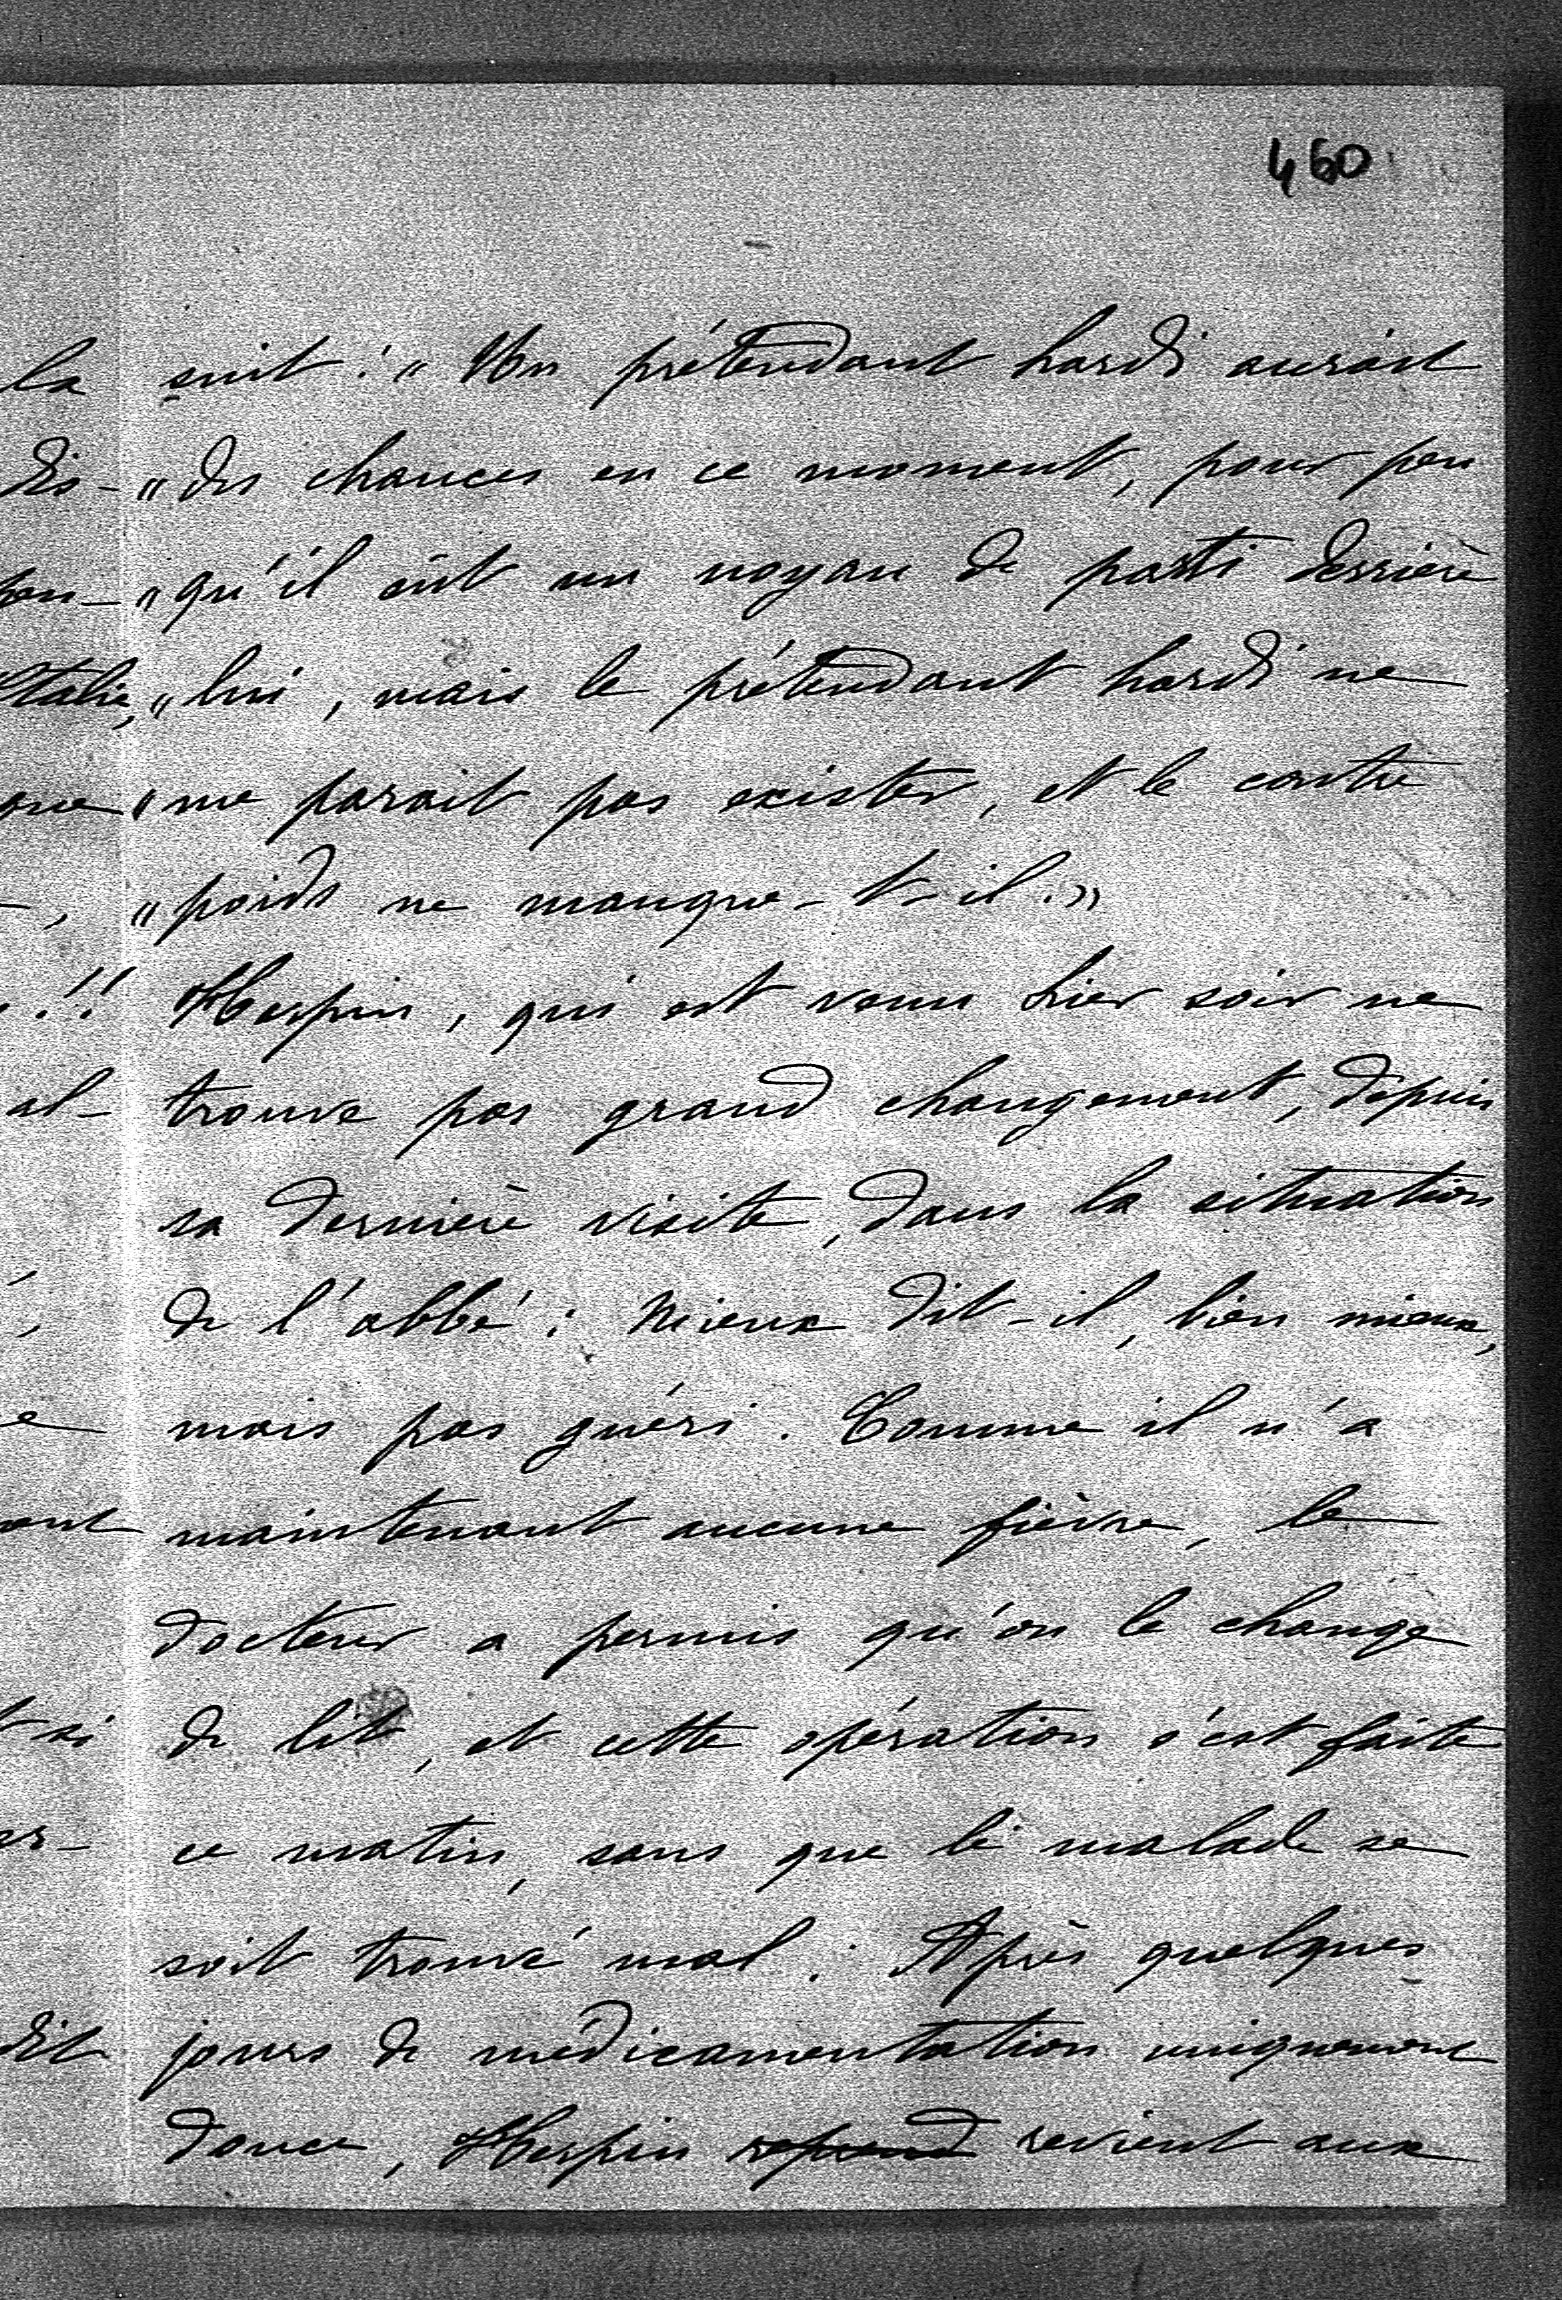 460
suit : « Un prétendant hardi aurait
« des chances en ce moment, pour peu
« qu'il eût un noyau de parti derrière
« lui, mais le prétendant hardi ne
« me parait pas exister, et le contre
« poids ne manque-t-il. »
Herpin, qui est venu hier soir ne
trouve pas grand changement, depuis
sa dernière visite, dans la situation
de l'abbé : Mieux dit-il, bien mieux,
mais pas guéri. Comme il n'a
maintenant aucune fièvre, le
docteur a permis qu'on le change
de lit, et cette opération s'est faite
ce matin, sans que le malade se
soit trouvé mal. Après quelques
jours de médicamentation uniquement
douce, Herpin reprend revient aux